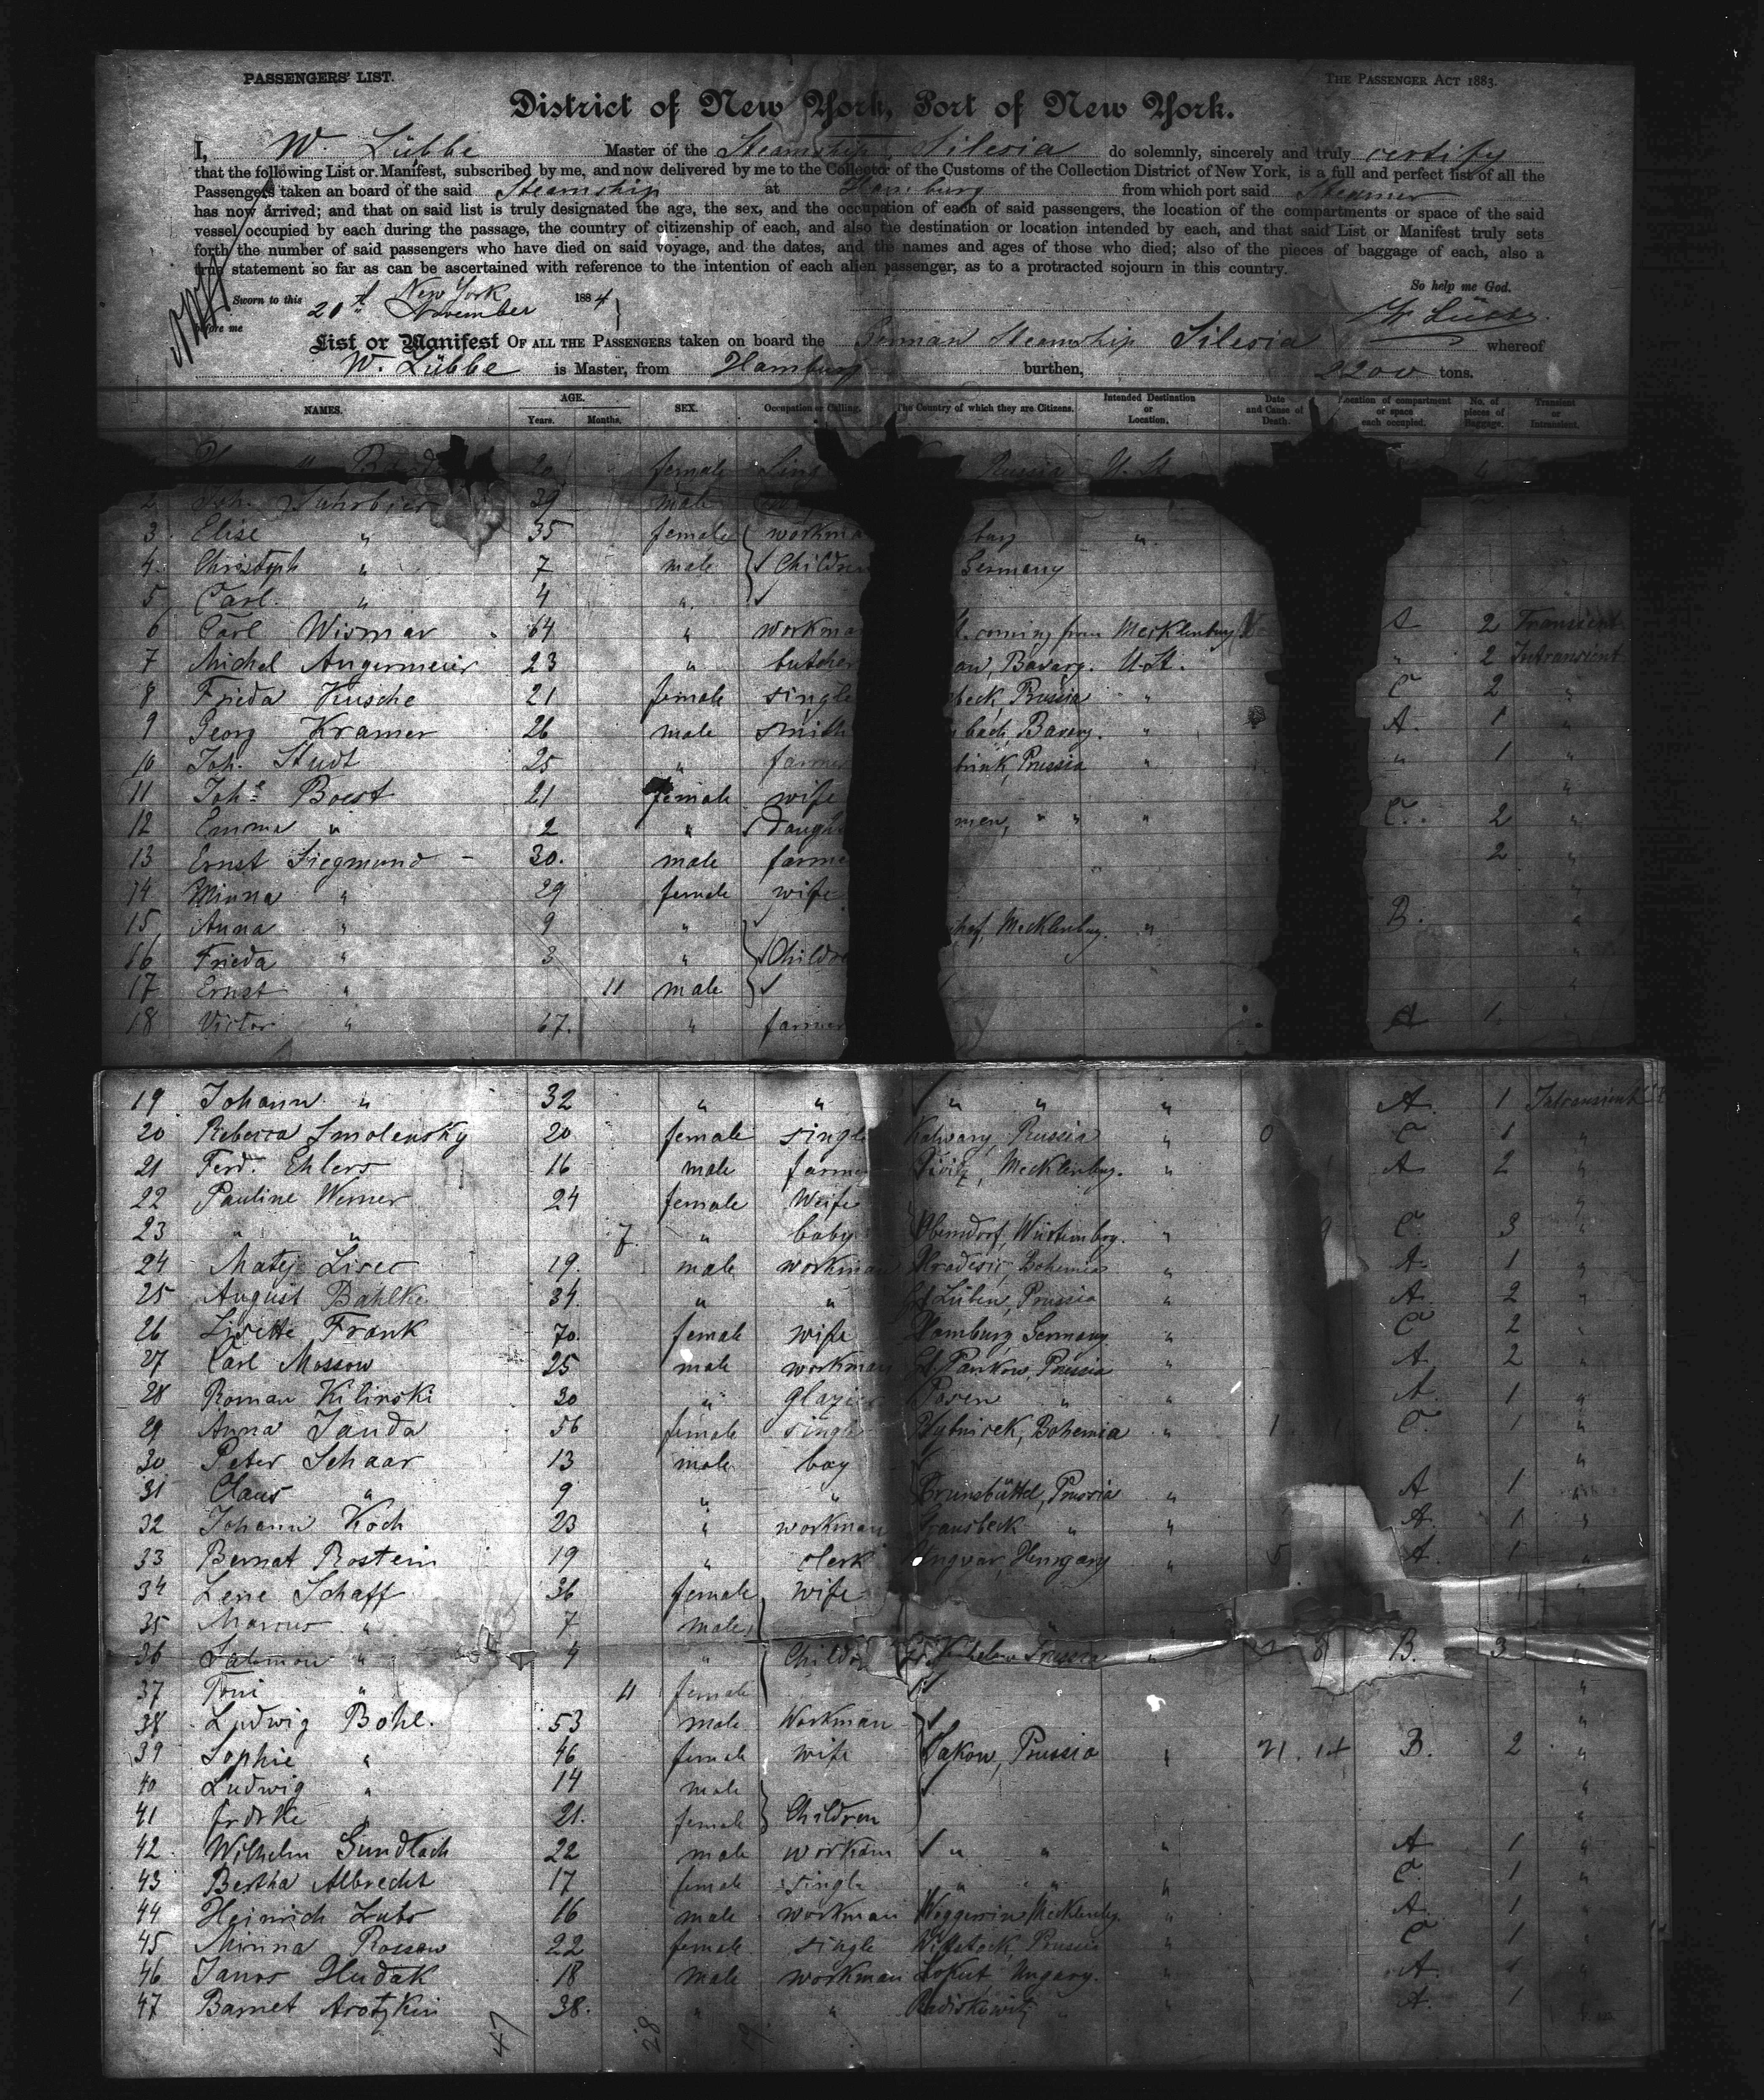 PASSENGERS' LIST.
THE PASSENGER ACT 1883.
District of New York, Port of New York.
I, W. Lübbe Master of the Steamship Silesia do solemnly, sincerely and truly certify
that the following List or Manifest, subscribed by me, and now delivered by me to the Collector of the Customs of the Collection District of New York, is a full and perfect list of all the
Passengers taken on board of the said Steamship at Hamburg from which port said Steamer
has now arrived; and that on said list is truly designated the age, the sex, and the occupation of each of said passengers, the location of the compartments or space of the said
vessel occupied by each during the passage, the country of citizenship of each, and also the destination or location intended by each, and that said List or Manifest truly sets
forth the number of said passengers who have died on said voyage, and the dates, and the names and ages of those who died; also of the pieces of baggage of each, also a
true statement so far as can be ascertained with reference to the intention of each alien passenger, as to a protracted sojourn in this country.
So help me God.
Sworn to this 20th New York November 1884
before me
W Lübbe
List or Manifest OF ALL THE PASSENGERS taken on board the German Steamship Silesia whereof
W. Lübbe is Master, from Hamburg burthen, 2200 tons.
NAMES. AGE. Years. Months. SEX. Occupation or Calling. The Country of which they are Citizens. Intended Destination or Location. Date and Cause of Death. Location of compartment or space each occupied. No. of pieces of Baggage. Transient or Intransient.
20 female Sing Russia U. St.
2 Joh. Suhrbier 39 male
3 Elise " 35 female workma burg "
4 Christoph " 7 male Children Germany
5 Carl " 4 "
6 Carl Wismar 64 " workma coming from Mecklenburg A 2 Transient
7 Michel Angermeier 23 " butcher Bavary. U. St. " 2 Intransient
8 Frieda Kusche 21 female single beck, Prussia " C 2 "
9 Georg Kramer 26 male smith bach, Bavary. " A. 1 "
10 Joh. Studt 25 " farmer brink, Prussia " " 1 "
11 Johe Boest 21 female wife "
12 Emma " 2 " Daugh men, " " " C. 2 "
13 Ernst Siegmund 30. male farme 2 "
14 Minna " 29 female wife "
15 Anna " 9 " hof, Mecklenbg. " B. "
16 Frieda " 3 " Childre "
17 Ernst " 11 male "
18 Victor " 67. " farmer A 1 "
19 Johann " 32 " " " " " A. 1 Intransient
20 Rebecca Smolensky 20 female single Kalwary, Russia " C 1 "
21 Ferd. Ehlers 16 male farme Mecklenbg. " A 2 "
22 Pauline Werner 24 female Weife "
23 " " 7 " baby Oberndorf, Würtembg. " C. 3 "
24 Matej Lisec 19. male workman Hradisic, Bohemia " A. 1 "
25 August Bahlke 34. " " Gr. Lüben, Prussia " A. 2 "
26 Lisette Frank 70. female wife Hamburg, Germany " C 2 "
27 Carl Mossow 25 male workman Gr. Pankow, Prussia " A. 2 "
28 Roman Kilinski 30 " glazier Posen " " A. 1 "
29 Anna Janda 56 female single Bohemia " C. 1 "
30 Peter Schaar 13 male boy "
31 Claus " 9 " " Brunsbüttel, Prussia " A 1 "
32 Johann Koch 23 " workman " " A. 1 "
33 Bernat Rostein 19 " clerk Ungvar, Hungary " A. 1 "
34 Lene Schaff 36 female wife "
35 Marcus " 7 male "
36 Salomon " 4 " Childr Prussia " B. 3 "
37 Toni " 11 female "
38 Ludwig Bohl. 53 male Workman "
39 Sophie " 46 female wife Sakow, Prussia " B. 2 "
40 Ludwig " 14 male "
41 Frdrke " 21. female Children "
42 Wilhelm Gundlach 22 male workam " " " A 1 "
43 Bertha Albrecht 17 female single " " " C. 1 "
44 Heinrich Lubs 16 male workman Woggersin, Mecklenbg. " A. 1 "
45 Minna Rossow 22 female single Wittstock, Prussia " C 1 "
46 Janos Hudak 18 male workman Lokut Ungary. " A. 1 "
47 Barnet Arotzkin 38. " " Radiskowitz " A. 1 "
47 28 19